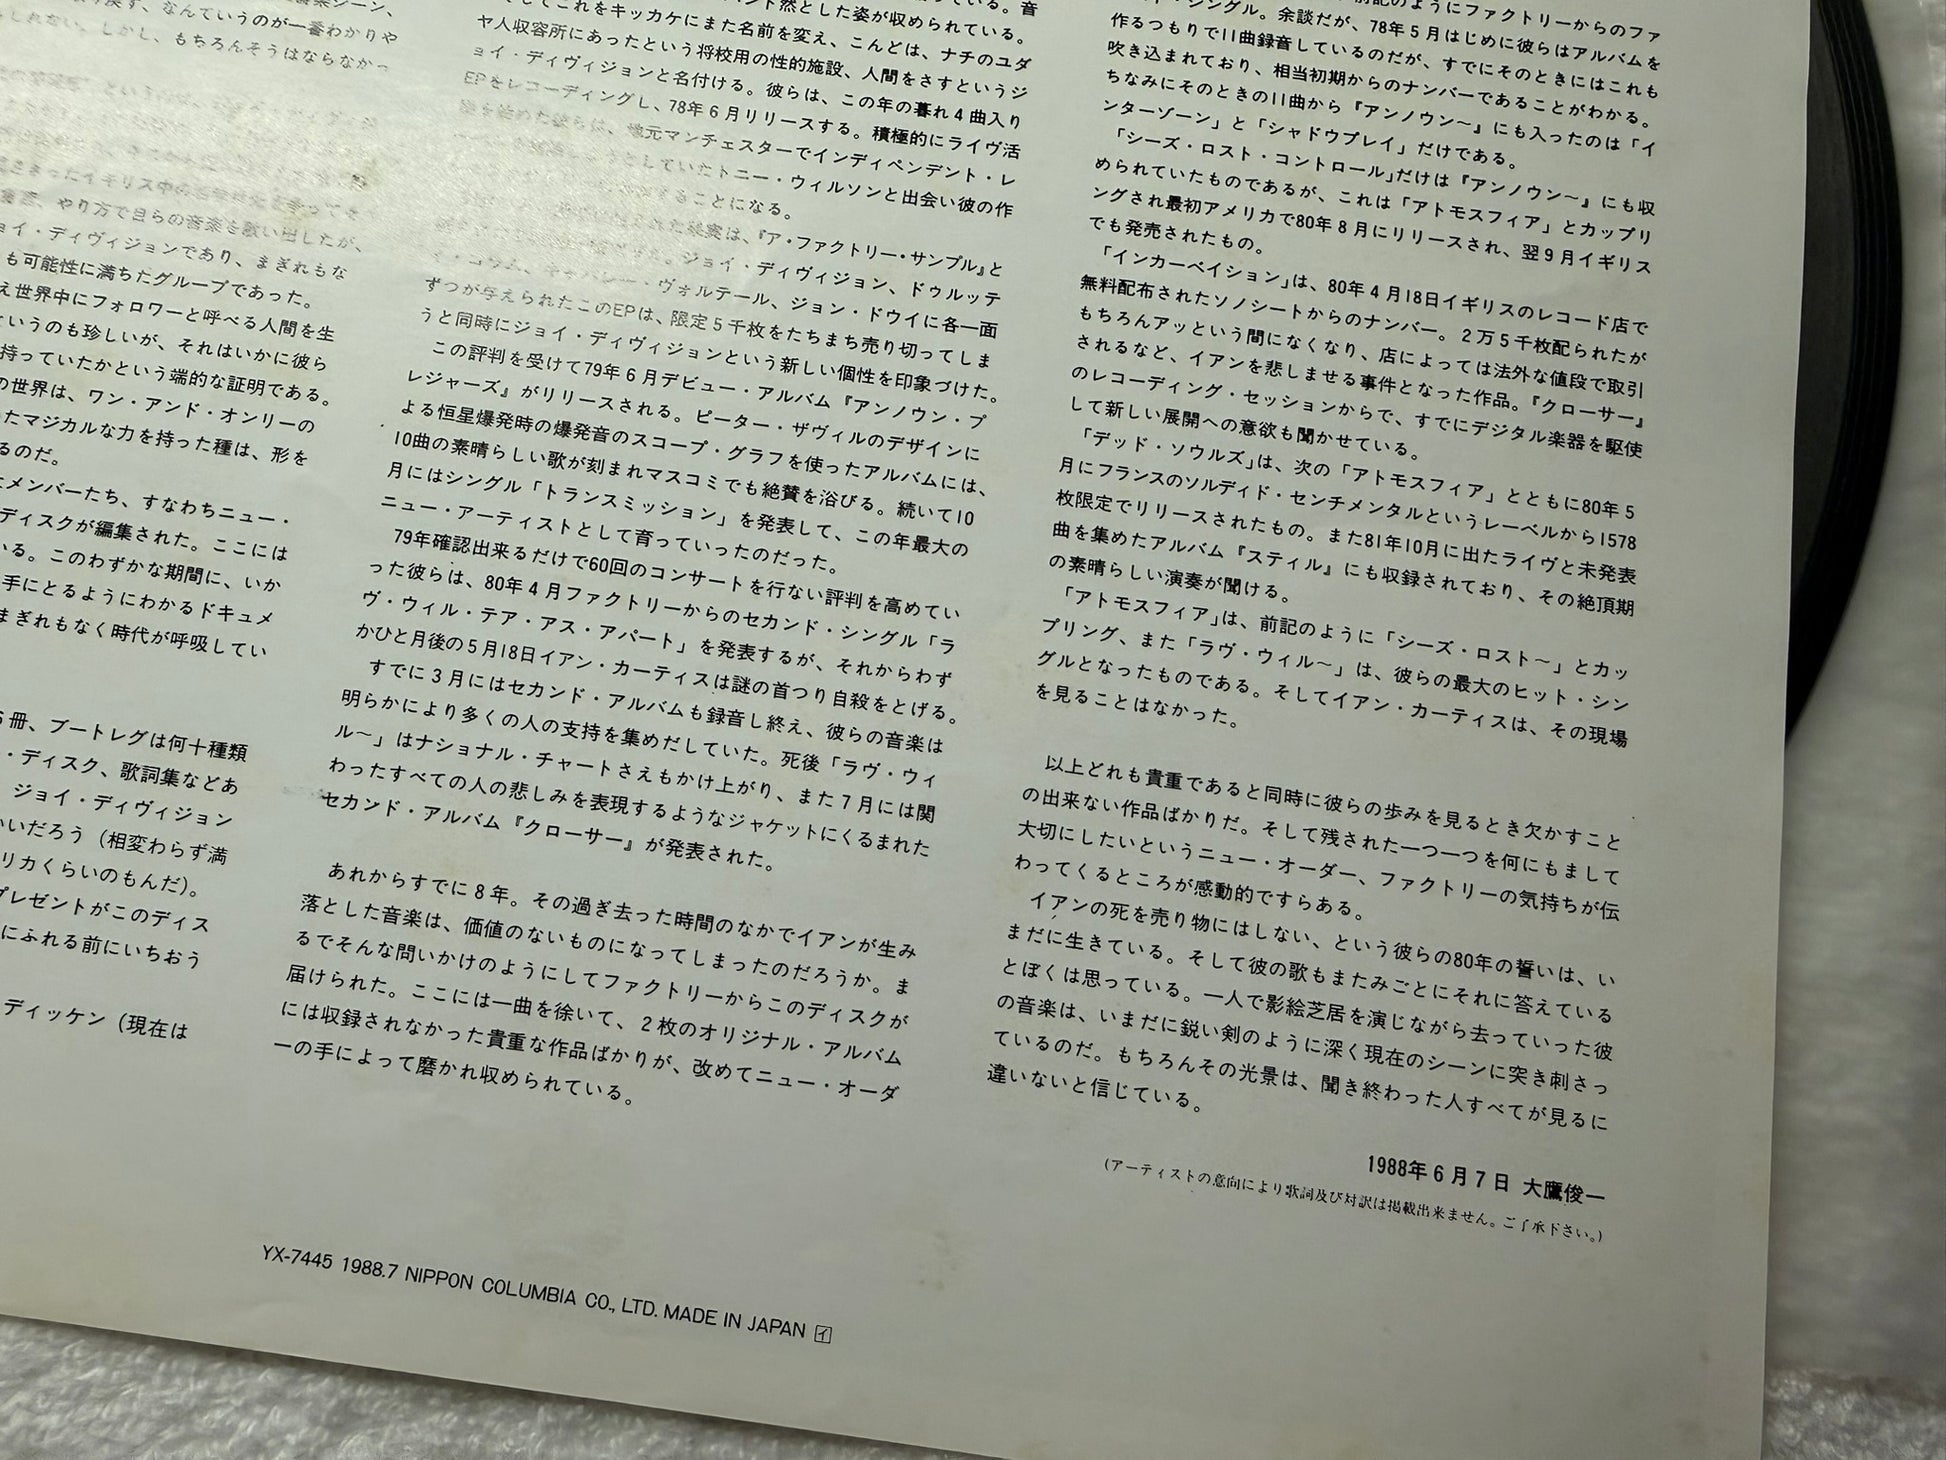 しれない。しかし、もちろんそうはならなかっ
やり方で自らの音楽を歌い出したが、
ョイ・ディヴィジョンであり、まぎれもな
も可能性に満ちたグループであった。
え世界中にフォロワーと呼べる人間を生
というのも珍しいが、それはいかに彼ら
持っていたかという端的な証明である。
の世界は、ワン・アンド・オンリーの
たマジカルな力を持った種は、形を
るのだ。
メンバーたち、すなわちニュー・
ディスクが編集された。ここには
いる。このわずかな期間に、いか
手にとるようにわかるドキュメ
まぎれもなく時代が呼吸してい
冊、ブートレグは何十種類
・ディスク、歌詞集などあ
ジョイ・ディヴィジョン
いいだろう（相変わらず満
リカくらいのもんだ）。
プレゼントがこのディス
にふれる前にいちおう
ディッケン（現在は
然とした姿が収められている。
そしてこれをキッカケにまた名前を変え、こんどは、ナチのユダ
ヤ人収容所にあったという将校用の性的施設、人間をさすというジ
ョイ・ディヴィジョンと名付ける。彼らは、この年の暮れ4曲入り
EPをレコーディングし、78年6月リリースする。積極的にライヴ活
地元マンチェスターでインディペンデント・レ
していたトニー・ウィルソンと出会い彼の作
ることになる。
『ア・ファクトリー・サンプル』と
ジョイ・ディヴィジョン、ドゥルッテ
ヴォルテール、ジョン・ドウイに各一面
ずつが与えられたこのEPは、限定5千枚をたちまち売り切ってしま
うと同時にジョイ・ディヴィジョンという新しい個性を印象づけた。
この評判を受けて79年6月デビュー・アルバム『アンノウン・プ
レジャーズ』がリリースされる。ピーター・ザヴィルのデザインに
よる恒星爆発時の爆発音のスコープ・グラフを使ったアルバムには、
10曲の素晴らしい歌が刻まれマスコミでも絶賛を浴びる。続いて10
月にはシングル「トランスミッション」を発表して、この年最大の
ニュー・アーティストとして育っていったのだった。
79年確認出来るだけで60回のコンサートを行ない評判を高めてい
った彼らは、80年4月ファクトリーからのセカンド・シングル「ラ
ヴ・ウィル・テア・アス・アパート」を発表するが、それからわず
かひと月後の5月18日イアン・カーティスは謎の首つり自殺をとげる。
すでに3月にはセカンド・アルバムも録音し終え、彼らの音楽は
明らかにより多くの人の支持を集めだしていた。死後「ラヴ・ウィ
ル〜」はナショナル・チャートさえもかけ上がり、また7月には関
わったすべての人の悲しみを表現するようなジャケットにくるまれた
セカンド・アルバム『クローサー』が発表された。
あれからすでに8年。その過ぎ去った時間のなかでイアンが生み
落とした音楽は、価値のないものになってしまったのだろうか。ま
るでそんな問いかけのようにしてファクトリーからこのディスクが
届けられた。ここには一曲を徐いて、2枚のオリジナル・アルバム
には収録されなかった貴重な作品ばかりが、改めてニュー・オーダ
ーの手によって磨かれ収められている。
前記のようにファクトリーからのファ
シングル。余談だが、78年5月はじめに彼らはアルバムを
作るつもりで11曲録音しているのだが、すでにそのときにはこれも
吹き込まれており、相当初期からのナンバーであることがわかる。
ちなみにそのときの11曲から『アンノウン〜』にも入ったのは「イ
ンターゾーン」と「シャドウプレイ」だけである。
「シーズ・ロスト・コントロール」だけは『アンノウン〜』にも収
められていたものであるが、これは「アトモスフィア」とカップリ
ングされ最初アメリカで80年8月にリリースされ、翌9月イギリス
でも発売されたもの。
「インカーベイション」は、80年4月18日イギリスのレコード店で
無料配布されたソノシートからのナンバー。2万5千枚配られたが
もちろんアッという間になくなり、店によっては法外な値段で取引
されるなど、イアンを悲しませる事件となった作品。『クローサー』
のレコーディング・セッションからで、すでにデジタル楽器を駆使
して新しい展開への意欲も聞かせている。
「デッド・ソウルズ」は、次の「アトモスフィア」とともに80年5
月にフランスのソルディド・センチメンタルというレーベルから1578
枚限定でリリースされたもの。また81年10月に出たライヴと未発表
曲を集めたアルバム『スティル』にも収録されており、その絶頂期
の素晴らしい演奏が聞ける。
「アトモスフィア」は、前記のように「シーズ・ロスト〜」とカッ
プリング、また「ラヴ・ウィル〜」は、彼らの最大のヒット・シン
グルとなったものである。そしてイアン・カーティスは、その現場
を見ることはなかった。
以上どれも貴重であると同時に彼らの歩みを見るとき欠かすこと
の出来ない作品ばかりだ。そして残された一つ一つを何にもまして
大切にしたいというニュー・オーダー、ファクトリーの気持ちが伝
わってくるところが感動的ですらある。
イアンの死を売り物にはしない、という彼らの80年の誓いは、い
まだに生きている。そして彼の歌もまたみごとにそれに答えている
とぼくは思っている。一人で影絵芝居を演じながら去っていった彼
の音楽は、いまだに鋭い剣のように深く現在のシーンに突き刺さっ
ているのだ。もちろんその光景は、聞き終わった人すべてが見るに
違いないと信じている。
1988年6月7日 大鷹俊一
(アーティストの意向により歌詞及び対訳は掲載出来ません。ご了承下さい。)
YX-7445 1988.7 NIPPON COLUMBIA CO., LTD. MADE IN JAPAN イ